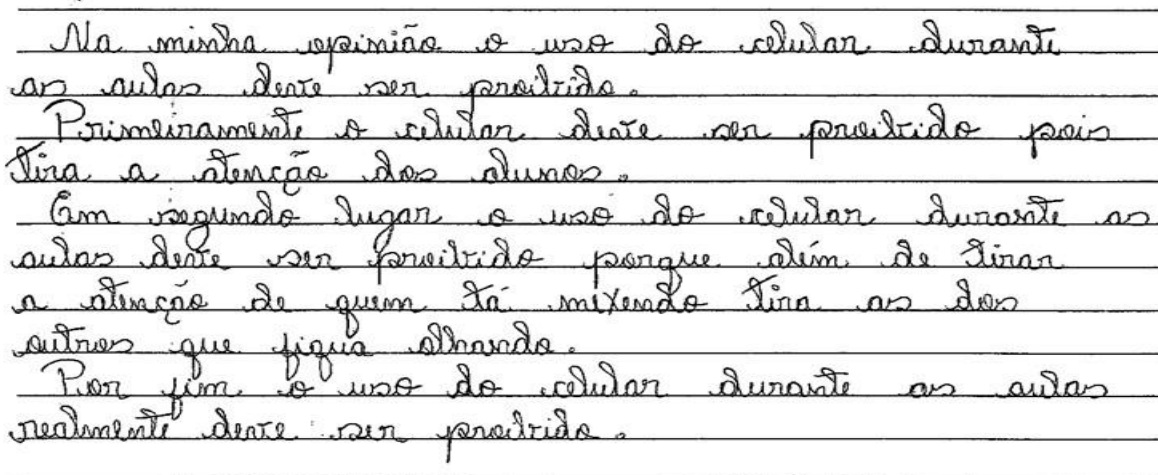 Na minha opinião o uso do celular durante
as aulas deve ser proibido.
Primeiramente o celular deve ser proibido pois
tira a atenção dos alunos.
Em segundo lugar o uso do celular durante as
aulas deve ser proibido porque além de tirar
a atenção de quem tá mixendo tira as dos
outros que fiqua olhando.
Por fim o uso do celular durante as aulas
realmente deve ser proibido.